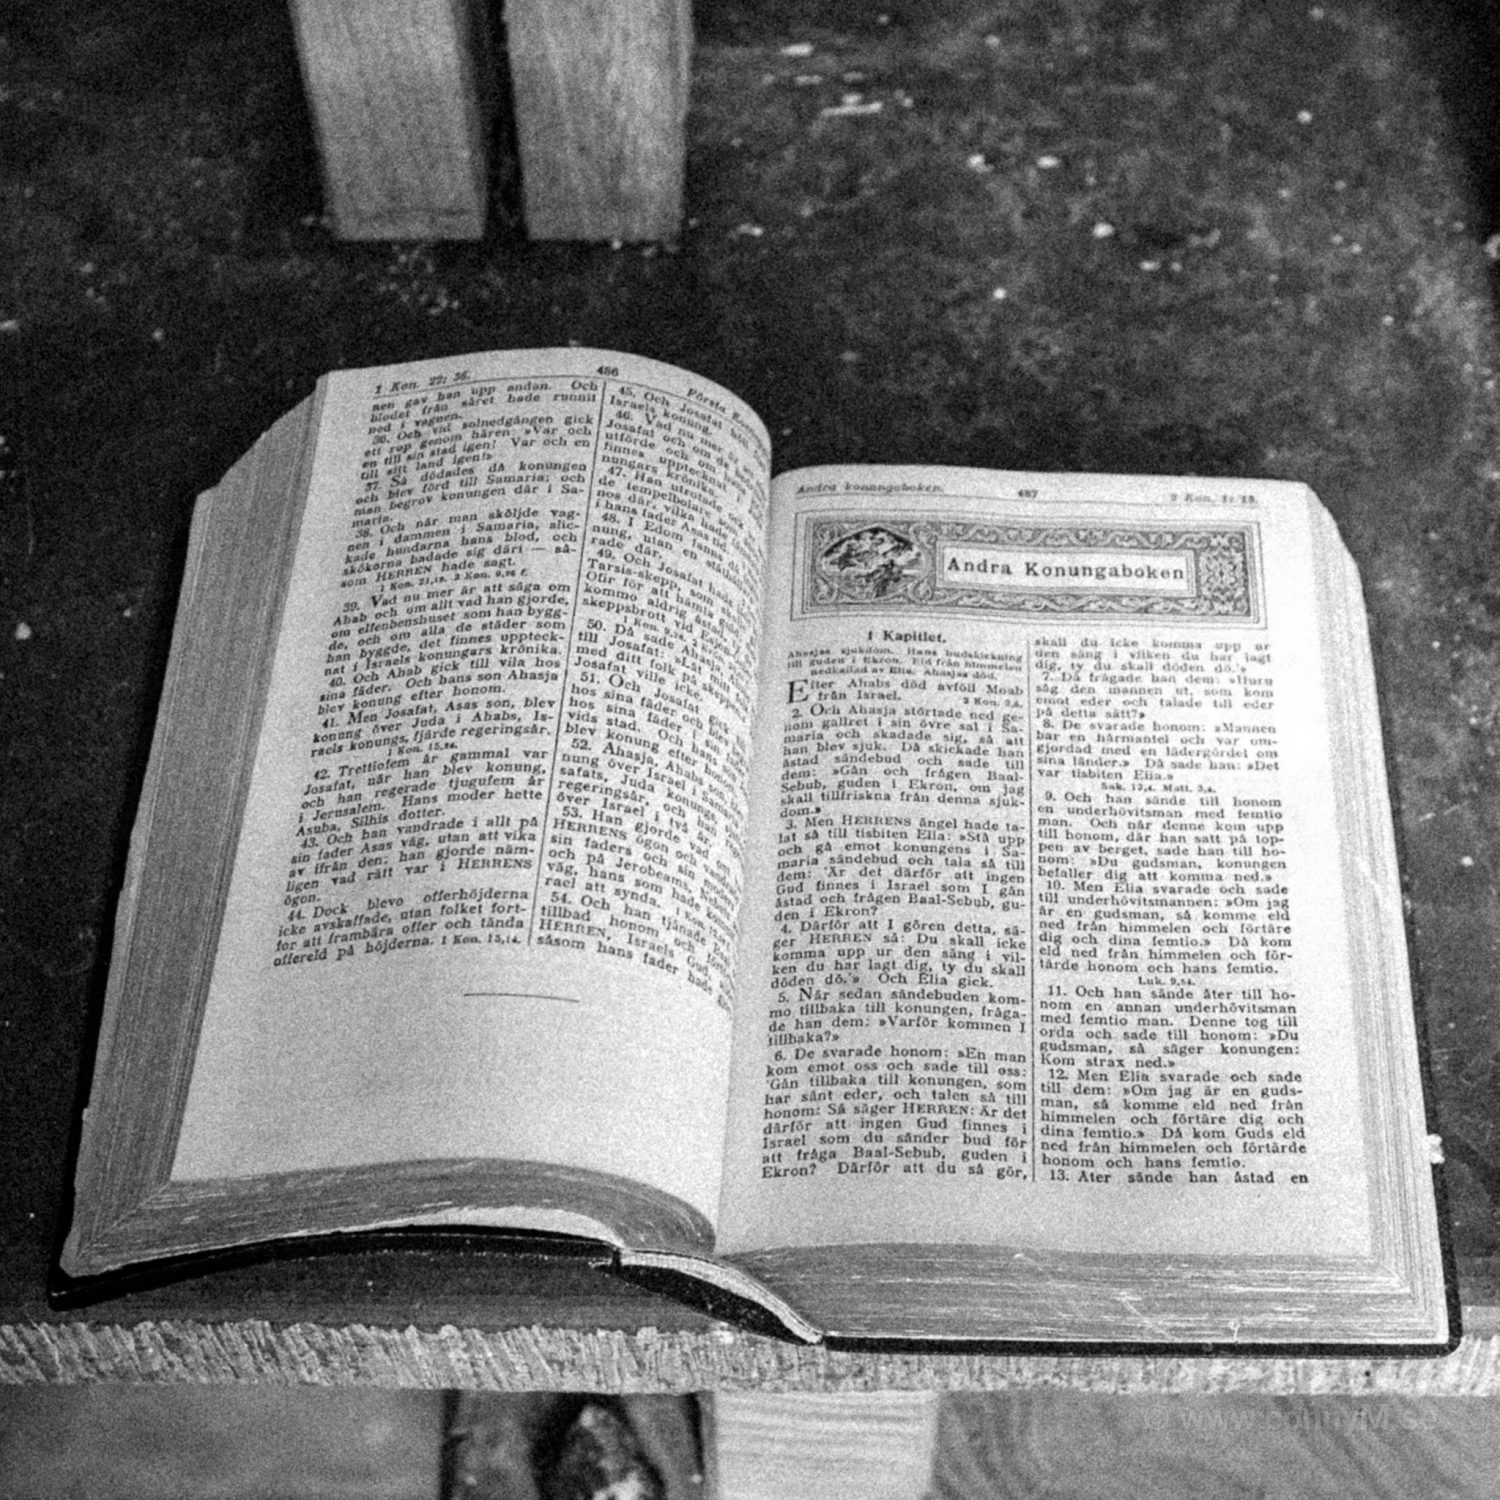 1 Kon. 22: 36.
486
Första
nen gav han upp andan. Och
blodet från såret hade runnit
ned i vagnen.
36. Och vid solnedgången gick
ett rop genom hären: »Var och
en till sin stad igen! Var och en
till sitt land igen!»
37. Så dödades då konungen
och blev förd till Samaria; och
man begrov konungen där i Sa-
maria.
38. Och när man sköljde vag-
nen i dammen i Samaria, slic-
kade hundarna hans blod, och
skökorna badade sig däri — så-
som HERREN hade sagt.
1 Kon. 21,19. 2 Kon. 9,25 f.
39. Vad nu mer är att säga om
Ahab och om allt vad han gjorde,
om elfenbenshuset som han bygg-
de, och om alla de städer som
han byggde, det finnes uppteck-
nat i Israels konungars krönika.
40. Och Ahab gick till vila hos
sina fäder. Och hans son Ahasja
blev konung efter honom.
41. Men Josafat, Asas son, blev
konung över Juda i Ahabs, Is-
raels konungs, fjärde regeringsår.
1 Kon. 15,24.
42. Trettiofem år gammal var
Josafat, när han blev konung,
och han regerade tjugufem år
i Jerusalem. Hans moder hette
Asuba, Silhis dotter.
43. Och han vandrade i allt på
sin fader Asas väg, utan att vika
av ifrån den; han gjorde näm-
ligen vad rätt var i HERRENS
ögon.
44. Dock blevo offerhöjderna
icke avskaffade, utan folket fort-
for att frambära offer och tända
offereld på höjderna. 1 Kon. 15,14.
45. Och Josafat höll
Israels konung.
46. Vad nu mer är att
Josafat och om de
utförde och om hans
finnes upptecknat i
nungars krönika.
47. Han utrotade ock
de tempelbolare som
nos där, vilka hade
i hans fader Asas tid.
48. I Edom fanns då
nung, utan en ståthåll
rade där.
49. Och Josafat hade
Tarsis-skepp, som sk
Ofir för att hämta guld;
kommo aldrig åstad,
skeppsbrott vid Esjon-
1 Kon. 9,26.
50. Då sade Ahasja, Ah
till Josafat: »Låt mitt
med ditt folk på skeppen
Josafat ville icke.
51. Och Josafat gick
hos sina fäder och blev
hos sina fäder i sin fader
vids stad. Och hans son
blev konung efter honom.
52. Ahasja, Ahabs son,
nung över Israel i Samaria
safats, Juda konungs,
regeringsår, och han
över Israel i två år.
53. Han gjorde vad on
HERRENS ögon och vandra
sin faders och sin moders
och på Jerobeams, Nebats
väg, hans som hade kom
rael att synda. 1 Kon.
54. Och han tjänade Baal
tillbad honom och förtör
HERREN, Israels Gud,
såsom hans fader hade
Andra konungaboken.
487
2 Kon. 1: 13.
Andra Konungaboken
1 Kapitlet.
Ahasjas sjukdom. Hans budskickning
till guden i Ekron. Eld från himmelen
nedkallad av Elia. Ahasjas död.
Efter Ahabs död avföll Moab
från Israel. 2 Kon. 3,4.
2. Och Ahasja störtade ned ge-
nom gallret i sin övre sal i Sa-
maria och skadade sig, så att
han blev sjuk. Då skickade han
åstad sändebud och sade till
dem: »Gån och frågen Baal-
Sebub, guden i Ekron, om jag
skall tillfriskna från denna sjuk-
dom.»
3. Men HERRENS ängel hade ta-
lat så till tisbiten Elia: »Stå upp
och gå emot konungens i Sa-
maria sändebud och tala så till
dem: 'Är det därför att ingen
Gud finnes i Israel som I gån
åstad och frågen Baal-Sebub, gu-
den i Ekron?
4. Därför att I gören detta, sä-
ger HERREN så: Du skall icke
komma upp ur den säng i vil-
ken du har lagt dig, ty du skall
döden dö.'» Och Elia gick.
5. När sedan sändebuden kom-
mo tillbaka till konungen, fråga-
de han dem: »Varför kommen I
tillbaka?»
6. De svarade honom: »En man
kom emot oss och sade till oss:
'Gån tillbaka till konungen, som
har sänt eder, och talen så till
honom: Så säger HERREN: Är det
därför att ingen Gud finnes i
Israel som du sänder bud för
att fråga Baal-Sebub, guden i
Ekron? Därför att du så gör,
skall du icke komma upp ur
den säng i vilken du har lagt
dig, ty du skall döden dö.'»
7. Då frågade han dem: »Huru
såg den mannen ut, som kom
emot eder och talade till eder
på detta sätt?»
8. De svarade honom: »Mannen
bar en hårmantel och var om-
gjordad med en lädergördel om
sina länder.» Då sade han: »Det
var tisbiten Elia.»
Sak. 13,4. Matt. 3,4.
9. Och han sände till honom
en underhövitsman med femtio
man. Och när denne kom upp
till honom, där han satt på top-
pen av berget, sade han till ho-
nom: »Du gudsman, konungen
befaller dig att komma ned.»
10. Men Elia svarade och sade
till underhövitsmannen: »Om jag
är en gudsman, så komme eld
ned från himmelen och förtäre
dig och dina femtio.» Då kom
eld ned från himmelen och för-
tärde honom och hans femtio.
Luk. 9,54.
11. Och han sände åter till ho-
nom en annan underhövitsman
med femtio man. Denne tog till
orda och sade till honom: »Du
gudsman, så säger konungen:
Kom strax ned.»
12. Men Elia svarade och sade
till dem: »Om jag är en guds-
man, så komme eld ned från
himmelen och förtäre dig och
dina femtio.» Då kom Guds eld
ned från himmelen och förtärde
honom och hans femtio.
13. Åter sände han åstad en